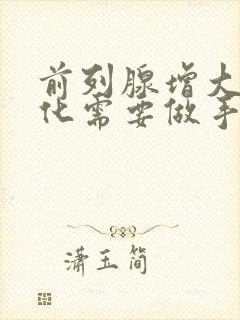 前列腺增大
化需要做手
潇玉简